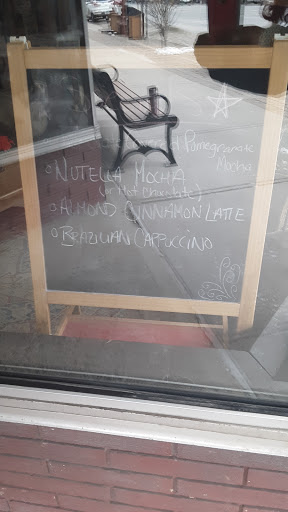 Pomegranate
Mocha
○ NUTELLA MOCHA
(or Hot chocolate)
○ ALMOND CINNAMON LATTE
○ BRAZILIAN CAPPUCCINO